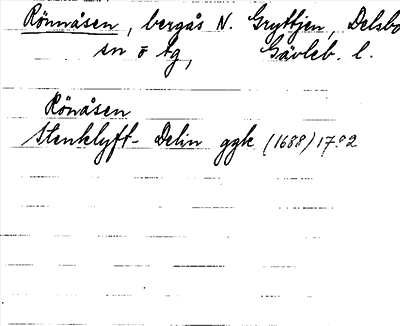 Rönnåsen, bergås N. Gryttjen, Delsbo
sn o tg, Gävleb. l.
Rönåsen
Stenklyft- Delin ggk (1688) 17°2